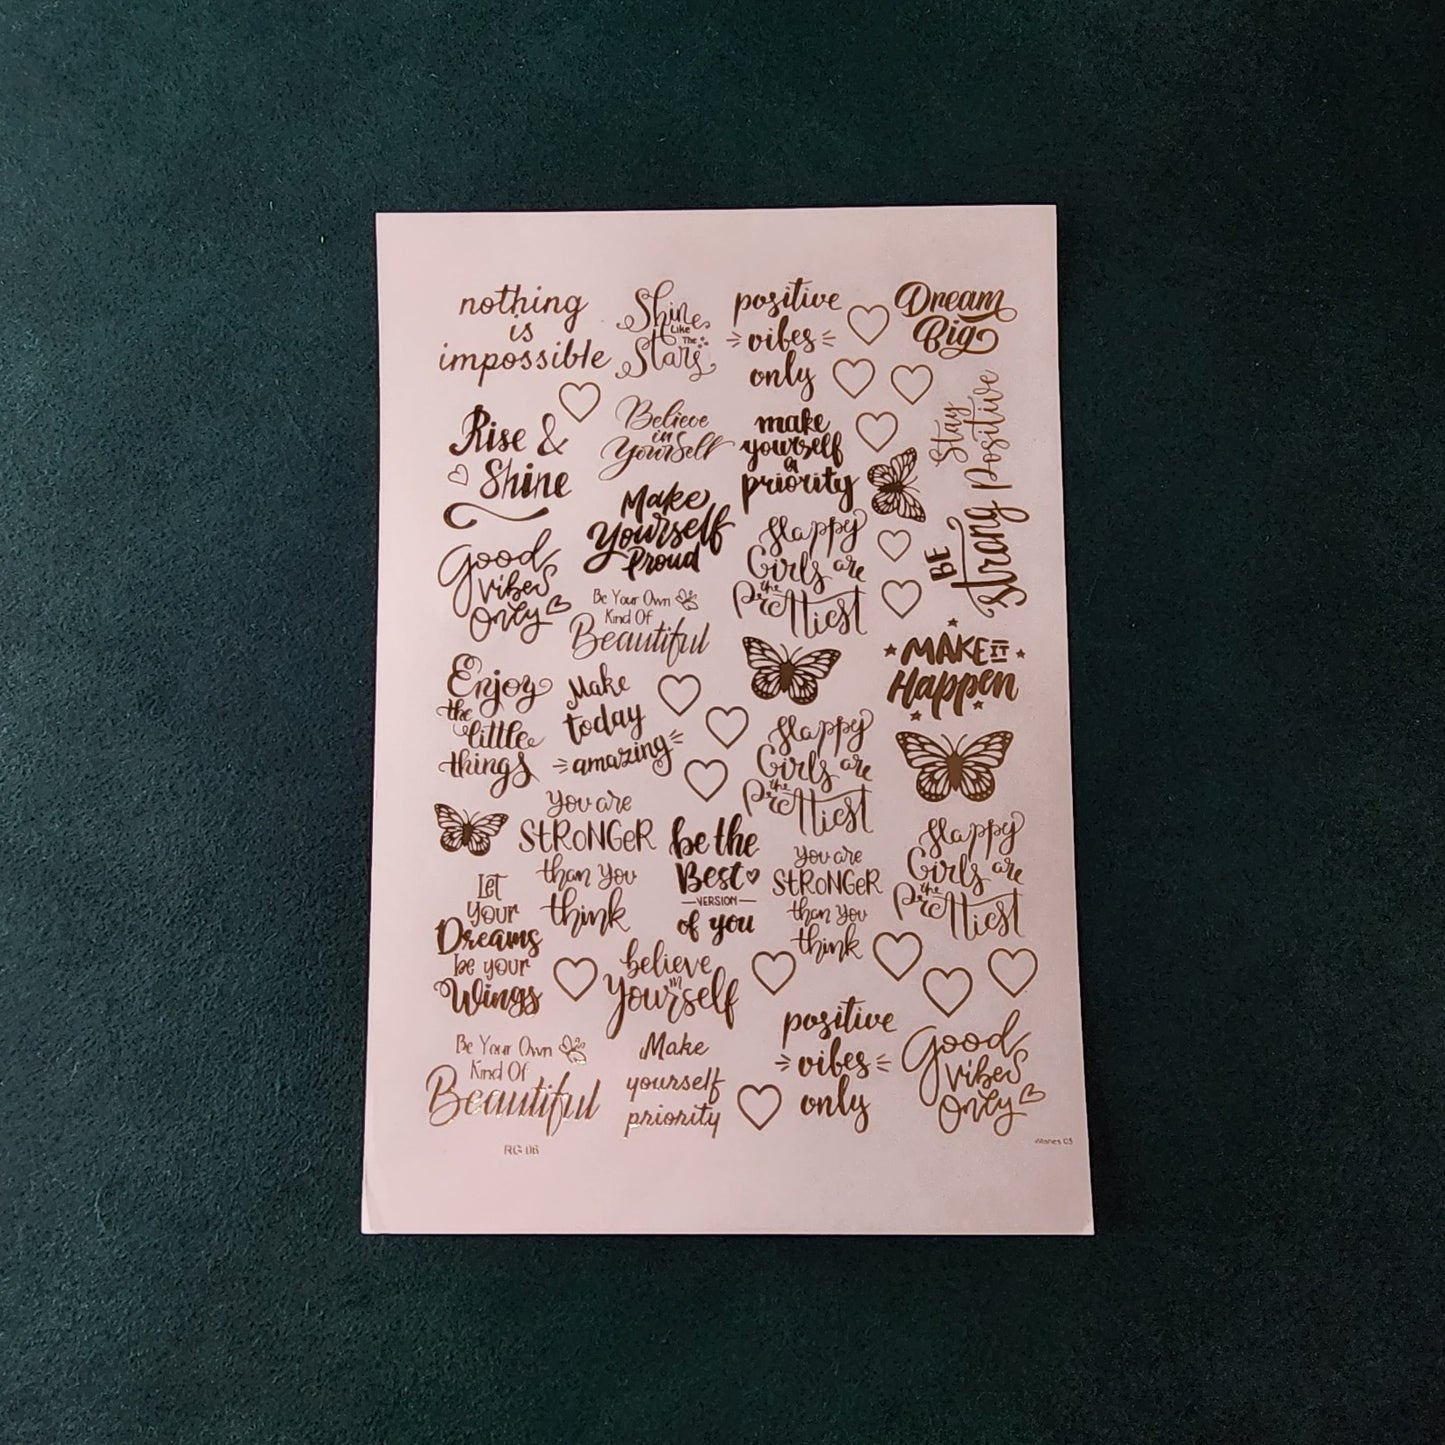 nothing
is
impossible
Shine
Like
The
Stars
positive
vibes
only
Dream
Big
Rise &
Shine
Believe
in
Yourself
make
yourself
a
priority
Stay
Positive
BE
Strong
Make
Yourself
Proud
Good
vibes
Only
Happy
Girls are
the
Prettiest
Be Your Own
Kind Of
Beautiful
MAKE IT
Happen
Enjoy
the
little
things
Make
today
amazing
Happy
Girls are
the
Prettiest
You are
STRONGER
than You
think
be the
Best
VERSION
of you
You are
STRONGER
than You
think
Happy
Girls are
the
Prettiest
Let
your
Dreams
be your
Wings
believe
in
yourself
Be Your Own
Kind Of
Beautiful
Make
yourself
priority
positive
vibes
only
Good
vibes
Only
RG 06